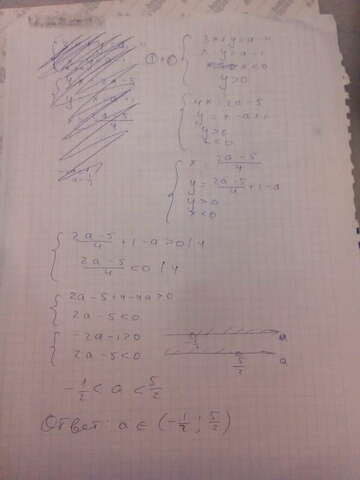 ① + ② { 3x + y = a - 4
x - y = a - 1
x < 0
y > 0
{ 4x = 2a - 5
y = x - a + 1
y > 0
x < 0
{ x = (2a - 5)/4
y = (2a - 5)/4 + 1 - a
y > 0
x < 0
{ (2a - 5)/4 + 1 - a > 0 / 4
(2a - 5)/4 < 0 / 4
{ 2a - 5 + 4 - 4a > 0
2a - 5 < 0
{ -2a - 1 > 0
2a - 5 < 0
a
5/2 a
-1/2 < a < 5/2
Ответ: a ∈ (-1/2; 5/2)